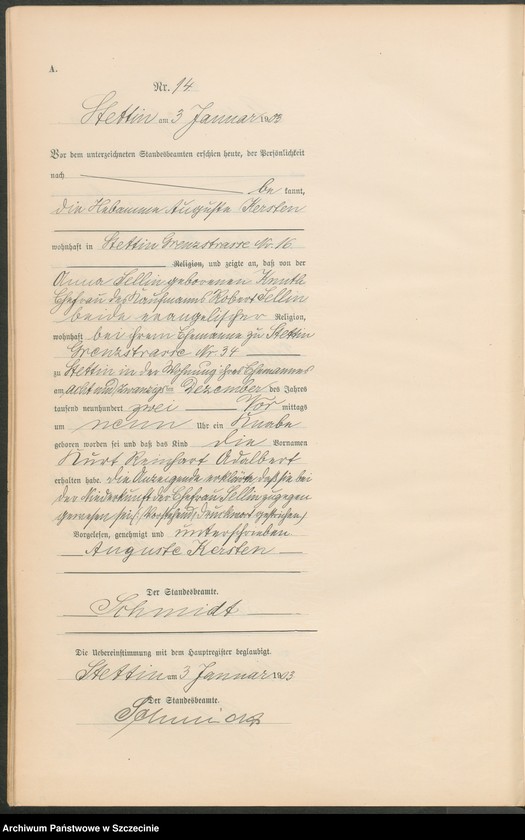 A.
Nr. 14
Stettin am 3 Januar 1903
Vor dem unterzeichneten Standesbeamten erschien heute, der Persönlichkeit
nach
be kannt,
die Hebamme Auguste Kersten
wohnhaft in Stettin Grenzstrasse Nr. 16
Religion, und zeigte an, daß von der
Anna Sellin geborenen
Ehefrau des Kaufmanns Robert Sellin
beide evangelischer Religion,
wohnhaft bei ihrem Ehemanne zu Stettin
Grenzstrasse Nr. 34
zu Stettin in der Wohnung ihres Ehemannes
am acht und zwanzigs= Dezember des Jahres
tausend neunhundert zwei Vor mittags
um neun Uhr ein Knabe
geboren worden sei und daß das Kind die Vornamen
Kurt Reinhart Adalbert
erhalten habe. Die Anzeigende erklärte, daß sie bei
der Niederkunft der Ehefrau Sellin zugegen
gewesen sei, (Vorstehend Druckwort gestrichen)
Vorgelesen, genehmigt und unterschrieben
Auguste Kersten
Der Standesbeamte.
Schmidt
Die Uebereinstimmung mit dem Hauptregister beglaubigt.
Stettin am 3 Januar 1903
Der Standesbeamte.
Schmidt
Archiwum Państwowe w Szczecinie